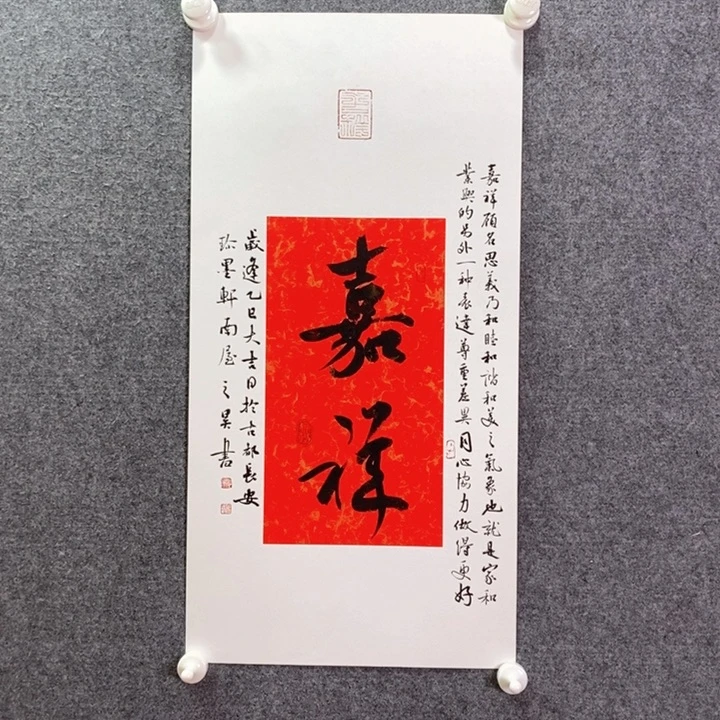 嘉祥
嘉祥顾名思义乃和睦和谐和美之氣象也就是家和
業興的另外一种表達尊重差異同心協力做得更好
歲逢乙巳大吉日於古都長安
珍墨軒南屋之昊書